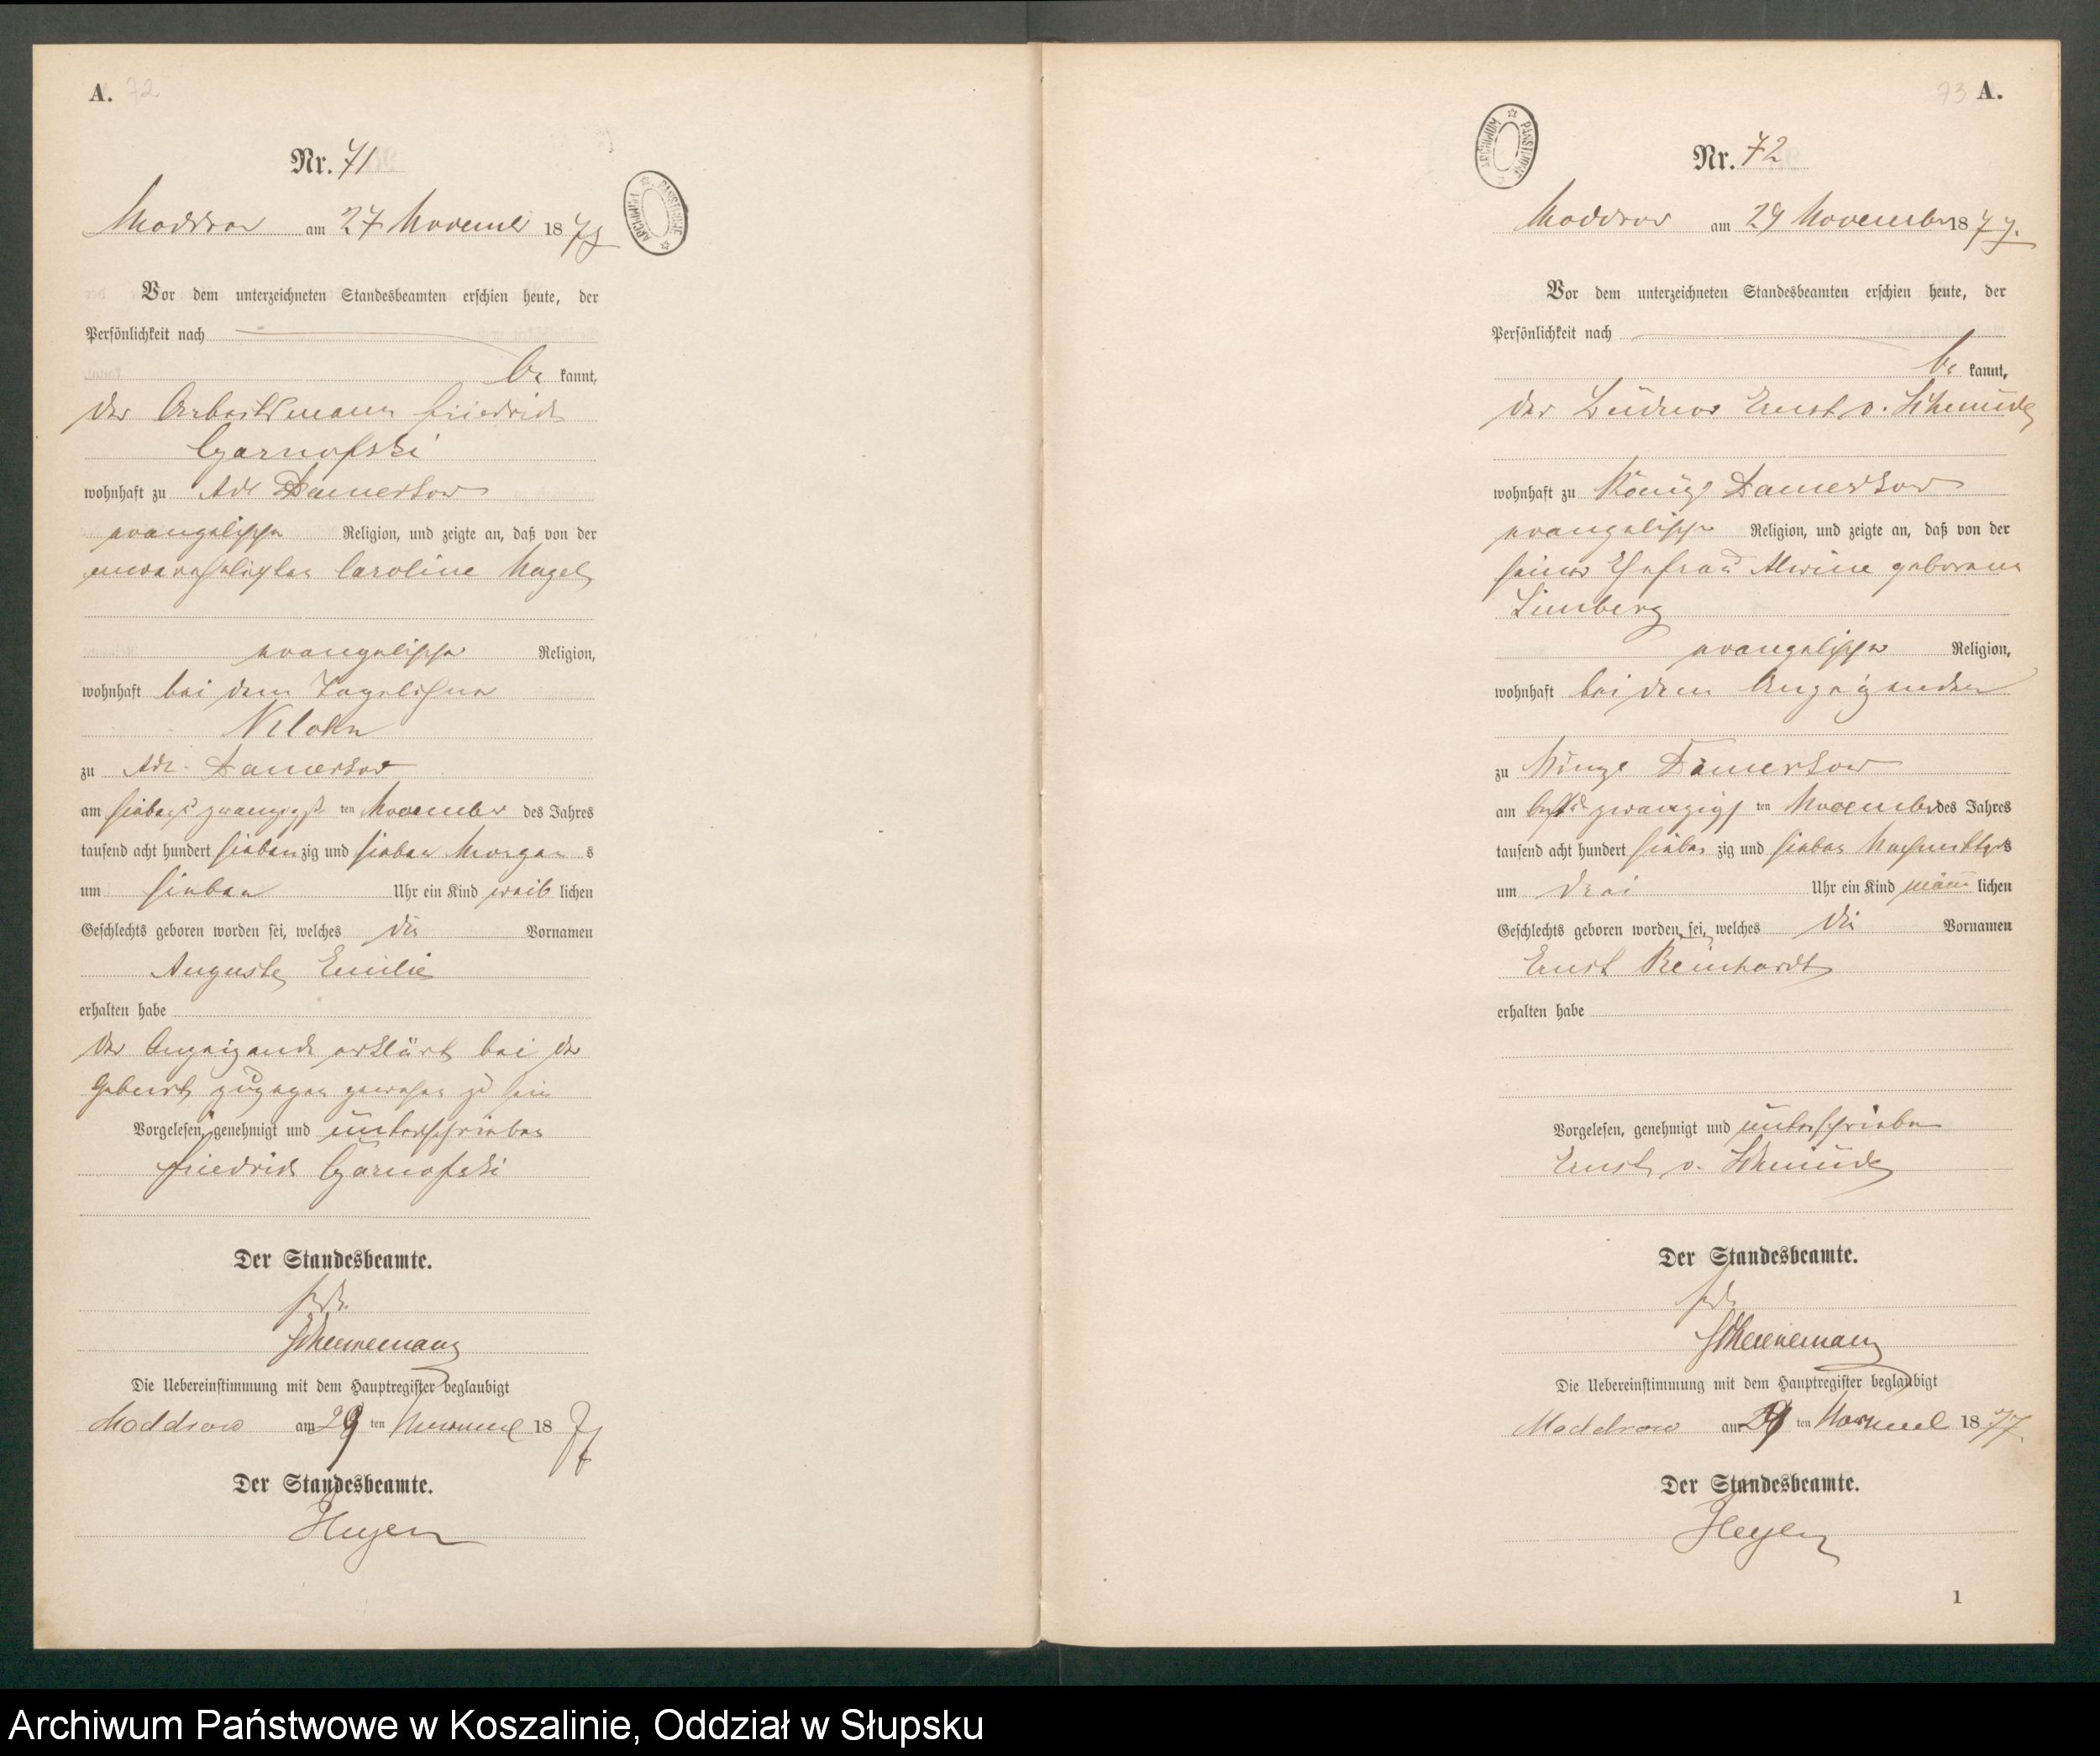 A. 72
Nr. 71
Moddrow am 27 November 1877
Vor dem unterzeichneten Standesbeamten erschien heute, der
Persönlichkeit nach
be kannt,
der Arbeitsmann Friedrich
Czarnofski
wohnhaft zu Adl Damerkow
evangelischer Religion, und zeigte an, daß von der
unverehelichten Caroline Nagel
evangelischer Religion,
wohnhaft bei dem Tagelöhner
zu Adl. Damerkow
am sieben u zwanzigst ten November des Jahres
tausend acht hundert sieben zig und sieben Morgen s
um sieben Uhr ein Kind weib lichen
Geschlechts geboren worden sei, welches die Vornamen
Auguste Emilie
erhalten habe
Der Anzeigende erklärt bei der
Geburt zugegen gewesen zu sein
Vorgelesen, genehmigt und unterschrieben
Friedrich Czarnofski
Der Standesbeamte.
Scheunemann
Die Uebereinstimmung mit dem Hauptregister beglaubigt
Moddrow am 29 ten November 1877
Der Standesbeamte.
Heyer
73 A.
Nr. 72
Moddrow am 29 November 1877.
Vor dem unterzeichneten Standesbeamten erschien heute, der
Persönlichkeit nach
be kannt,
der Büdner Ernst v. Schmude
wohnhaft zu Königl Damerkow
evangelischer Religion, und zeigte an, daß von der
seiner Ehefrau Alwine geborene
Limberg
evangelischer Religion,
wohnhaft bei dem Anzeigenden
zu Königl Damerkow
am acht u zwanzigs ten November des Jahres
tausend acht hundert sieben zig und sieben Nachmittags
um drei Uhr ein Kind männ lichen
Geschlechts geboren worden sei, welches die Vornamen
Ernst Reinhardt
erhalten habe
Vorgelesen, genehmigt und unterschrieben
Ernst v. Schmude
Der Standesbeamte.
Scheunemann
Die Uebereinstimmung mit dem Hauptregister beglaubigt
Moddrow am 29 ten November 1877
Der Standesbeamte.
Heyer
1
ARCHIWUM PAŃSTWOWE
ARCHIWUM PAŃSTWOWE
Archiwum Państwowe w Koszalinie, Oddział w Słupsku